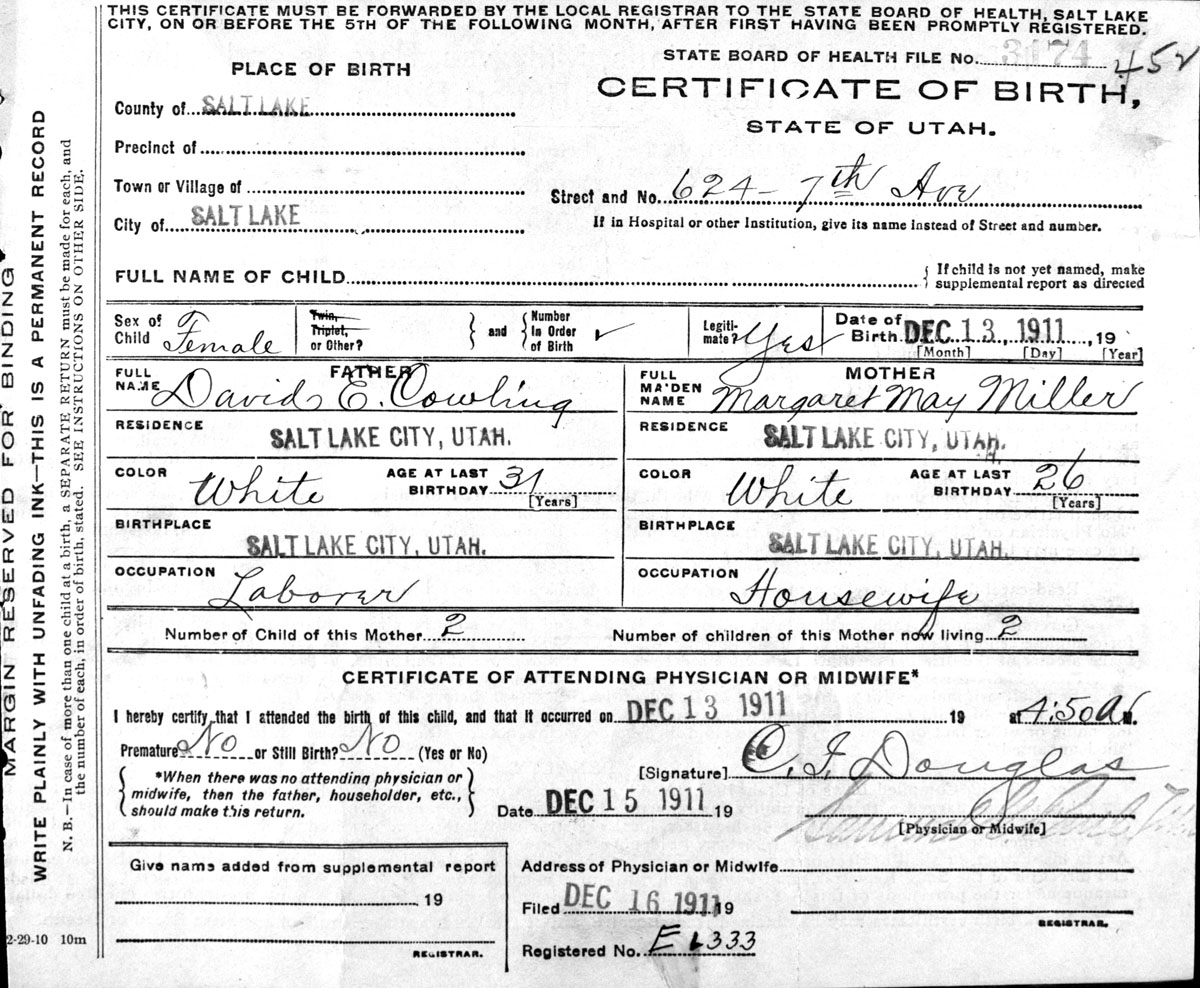 THIS CERTIFICATE MUST BE FORWARDED BY THE LOCAL REGISTRAR TO THE STATE BOARD OF HEALTH, SALT LAKE
CITY, ON OR BEFORE THE 5TH OF THE FOLLOWING MONTH, AFTER FIRST HAVING BEEN PROMPTLY REGISTERED.
STATE BOARD OF HEALTH FILE No. 3174 452
CERTIFICATE OF BIRTH,
STATE OF UTAH.
PLACE OF BIRTH
County of SALT LAKE
Precinct of
Town or Village of
City of SALT LAKE
Street and No. 624 - 7th Ave
If in Hospital or other Institution, give its name instead of Street and number.
FULL NAME OF CHILD
If child is not yet named, make
supplemental report as directed
Sex of
Child Female
Twin,
Triplet,
or Other?
and
Number
In Order
of Birth
Legiti-
mate? Yes
Date of
Birth DEC 13, 1911, 19
[Month] [Day] [Year]
FATHER
FULL
NAME David E. Cowling
RESIDENCE
SALT LAKE CITY, UTAH.
COLOR White
AGE AT LAST
BIRTHDAY 31
[Years]
BIRTHPLACE
SALT LAKE CITY, UTAH.
OCCUPATION
Laborer
MOTHER
FULL
MAIDEN
NAME Margaret May Miller
RESIDENCE
SALT LAKE CITY, UTAH.
COLOR White
AGE AT LAST
BIRTHDAY 26
[Years]
BIRTHPLACE
SALT LAKE CITY, UTAH.
OCCUPATION
Housewife
Number of Child of this Mother 2
Number of children of this Mother now living 2
CERTIFICATE OF ATTENDING PHYSICIAN OR MIDWIFE*
I hereby certify that I attended the birth of this child, and that it occurred on DEC 13 1911 19 at 4:50 A M.
Premature No or Still Birth? No (Yes or No)
*When there was no attending physician or
midwife, then the father, householder, etc.,
should make this return.
[Signature] C. I. Douglas
Date DEC 15 1911 19
[Physician or Midwife]
Give name added from supplemental report
19
REGISTRAR.
Address of Physician or Midwife
Filed DEC 16 1911 19
REGISTRAR.
Registered No. E 1333
2-29-10 10m
MARGIN RESERVED FOR BINDING
WRITE PLAINLY WITH UNFADING INK—THIS IS A PERMANENT RECORD
N. B.—In case of more than one child at a birth, a SEPARATE RETURN must be made for each, and
the number of each, in order of birth, stated. SEE INSTRUCTIONS ON OTHER SIDE.